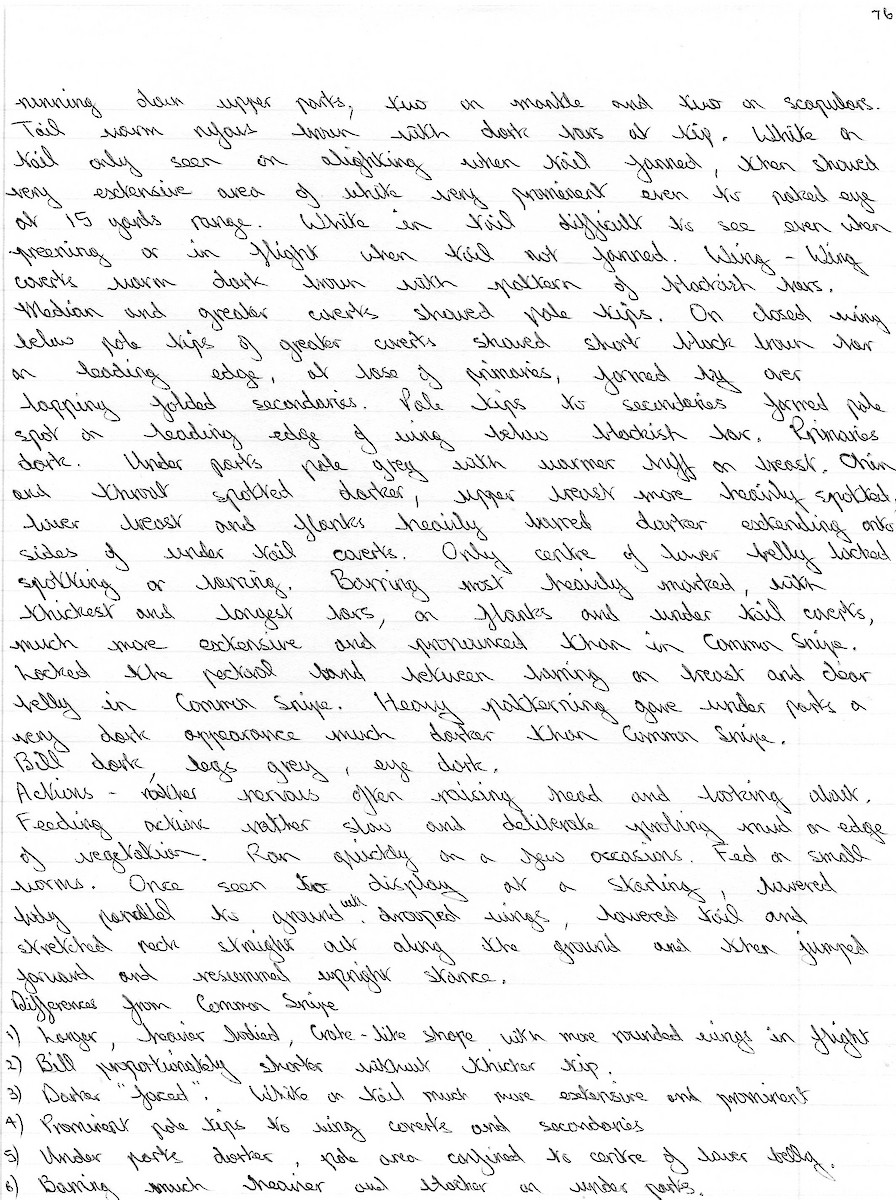 76
running down upper parts, two on mantle and two on scapulars.
Tail warm rufous brown with dark bars at tip. White on
tail only seen on alighting when tail fanned, then showed
very extensive area of white very prominent even to naked eye
at 15 yards range. White in tail difficult to see even when
preening or in flight when tail not fanned. Wing - Wing
coverts warm dark brown with pattern of blackish bars.
Median and greater coverts showed pale tips. On closed wing
below pale tips of greater coverts showed short black brown bar
on leading edge, at base of primaries, formed by over
lapping folded secondaries. Pale tips to secondaries formed pale
spot on leading edge of wing below blackish bar. Primaries
dark. Under parts pale grey with warmer buff on breast. Chin
and throat spotted darker, upper breast more heavily spotted.
Lower breast and flanks heavily barred darker extending onto
sides of under tail coverts. Only centre of lower belly lacked
spotting or barring. Barring most heavily marked, with
thickest and longest bars, on flanks and under tail coverts,
much more extensive and pronounced than in Common Snipe.
Lacked the pectoral band between barring on breast and clear
belly in Common Snipe. Heavy patterning gave under parts a
very dark appearance much darker than Common Snipe.
Bill dark, legs grey, eye dark.
Actions - rather nervous often raising head and looking about.
Feeding actions rather slow and deliberate probing mud on edge
of vegetation. Ran quickly on a few occasions. Fed on small
worms. Once seen to display at a Starling, lowered
body parallel to ground with drooped wings, lowered tail and
stretched neck straight out along the ground and then jumped
forward and resummed upright stance.
Differences from Common Snipe
1) Larger, heavier bodied, Crake-like shape with more rounded wings in flight
2) Bill proportionately shorter without thicker tip.
3) Darker "faced". White on tail much more extensive and prominent
4) Prominent pale tips to wing coverts and secondaries
5) Under parts darker, pale area confined to centre of lower belly.
6) Barring much heavier and blacker on under parts.